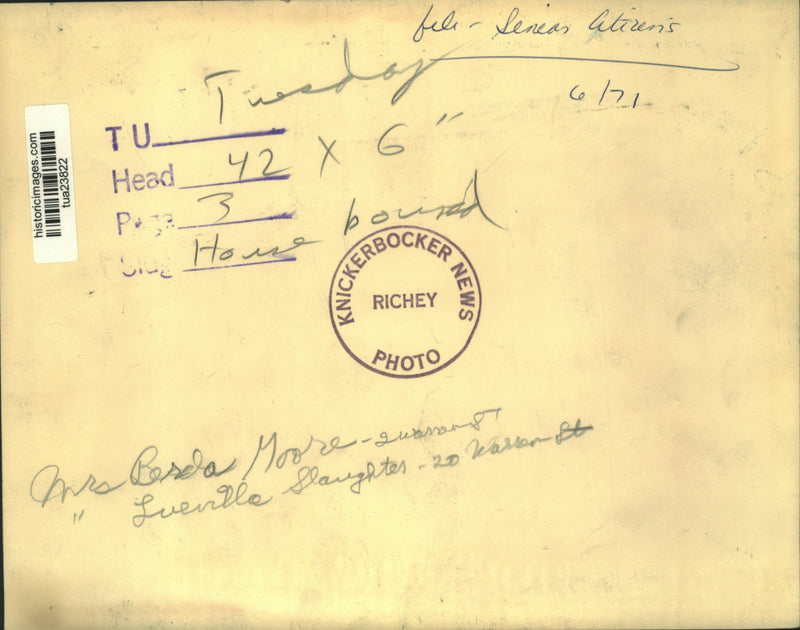 file - Senior Citizens
Tuesday
6/71
TU
Head 42 x 6"
Page 3
Slug House bound
KNICKERBOCKER NEWS
RICHEY
PHOTO
historicimages.com
tua23822
Mrs Berda Moore - 2 Warren St
" Luevilla Slaughter - 20 Warren St